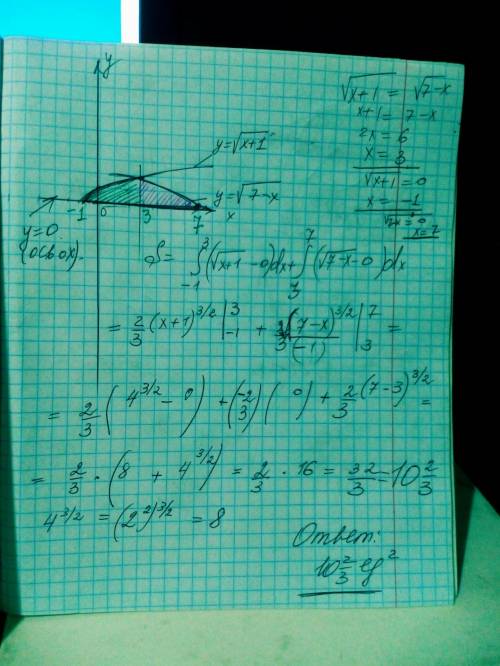 y
√(x+1) = √(7-x)
x+1 = 7-x
2x = 6
x = 3
√(x+1) = 0
x = -1
√(7-x) = 0
x = 7
y=√(x+1)
y=√(7-x)
-1 0 3 7 x
y=0
(ось ox).
S = ∫₋₁³ (√(x+1) - 0)dx + ∫₃⁷ (√(7-x) - 0)dx
= 2/3 (x+1)^(3/2) |₋₁³ + 2/3 (7-x)^(3/2)/(-1) |₃⁷ =
= 2/3 (4^(3/2) - 0) + (-2/3)(0) + 2/3 (7-3)^(3/2) =
= 2/3 · (8 + 4^(3/2)) = 2/3 · 16 = 32/3 = 10 2/3
4^(3/2) = (2²)^(3/2) = 8
Ответ:
10 2/3 ед²